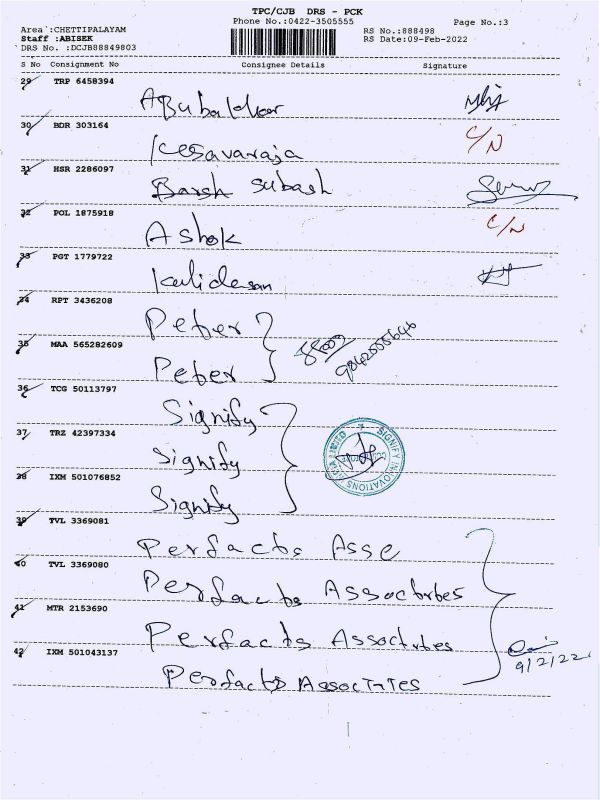 TPC/CJB DRS - PCK
Phone No.:0422-3505555
Page No.:3
Area :CHETTIPALAYAM
Staff :ABISEK
DRS No. :DCJB88849803
RS No.:888498
RS Date:09-Feb-2022
S No Consignment No Consignee Details Signature
29 TRP 6458394
30 BDR 303164
C/N
Kesavaraja
31 HSR 2286097
Barsh Subash
32 POL 1875918
C/N
Ashok
33 PGT 1779722
Kalidasan
34 RPT 3436208
Peter
35 MAA 565282609
Peter
36 TCG 50113797
Signify
37 TRZ 42397334
Signify
SIGNIFY INNOVATIONS
38 IXM 501076852
Signify
39 TVL 3369081
Perfacts Asse
40 TVL 3369080
Perfacts Assoctrbes
41 MTR 2153690
Perfacts Assoctrbes
42 IXM 501043137
9/2/22
Perfacts Associates